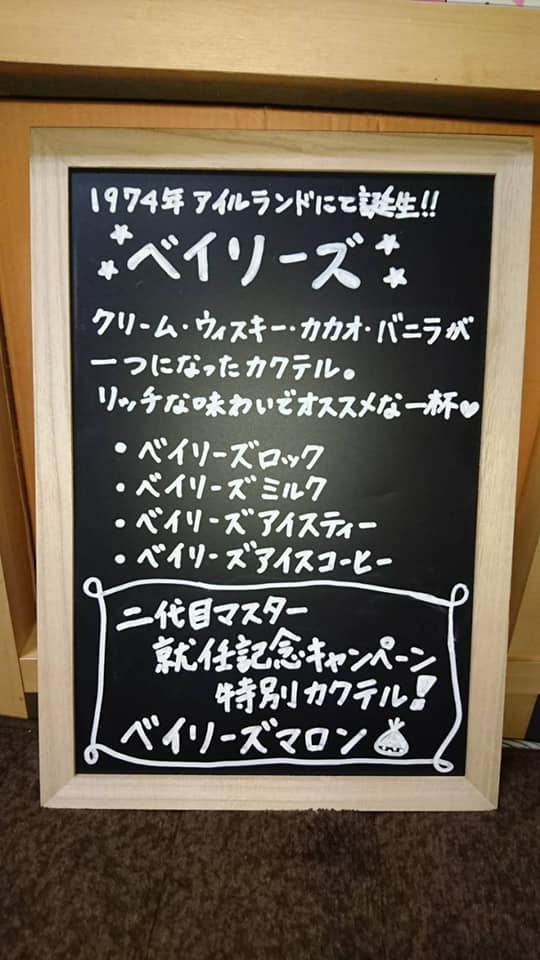 1974年 アイルランドにて誕生!!
ベイリーズ
クリーム・ウィスキー・カカオ・バニラが
一つになったカクテル。
リッチな味わいでオススメな一杯♥
• ベイリーズロック
• ベイリーズミルク
• ベイリーズアイスティー
• ベイリーズアイスコーヒー
二代目マスター
就任記念キャンペーン
特別カクテル!
ベイリーズマロン